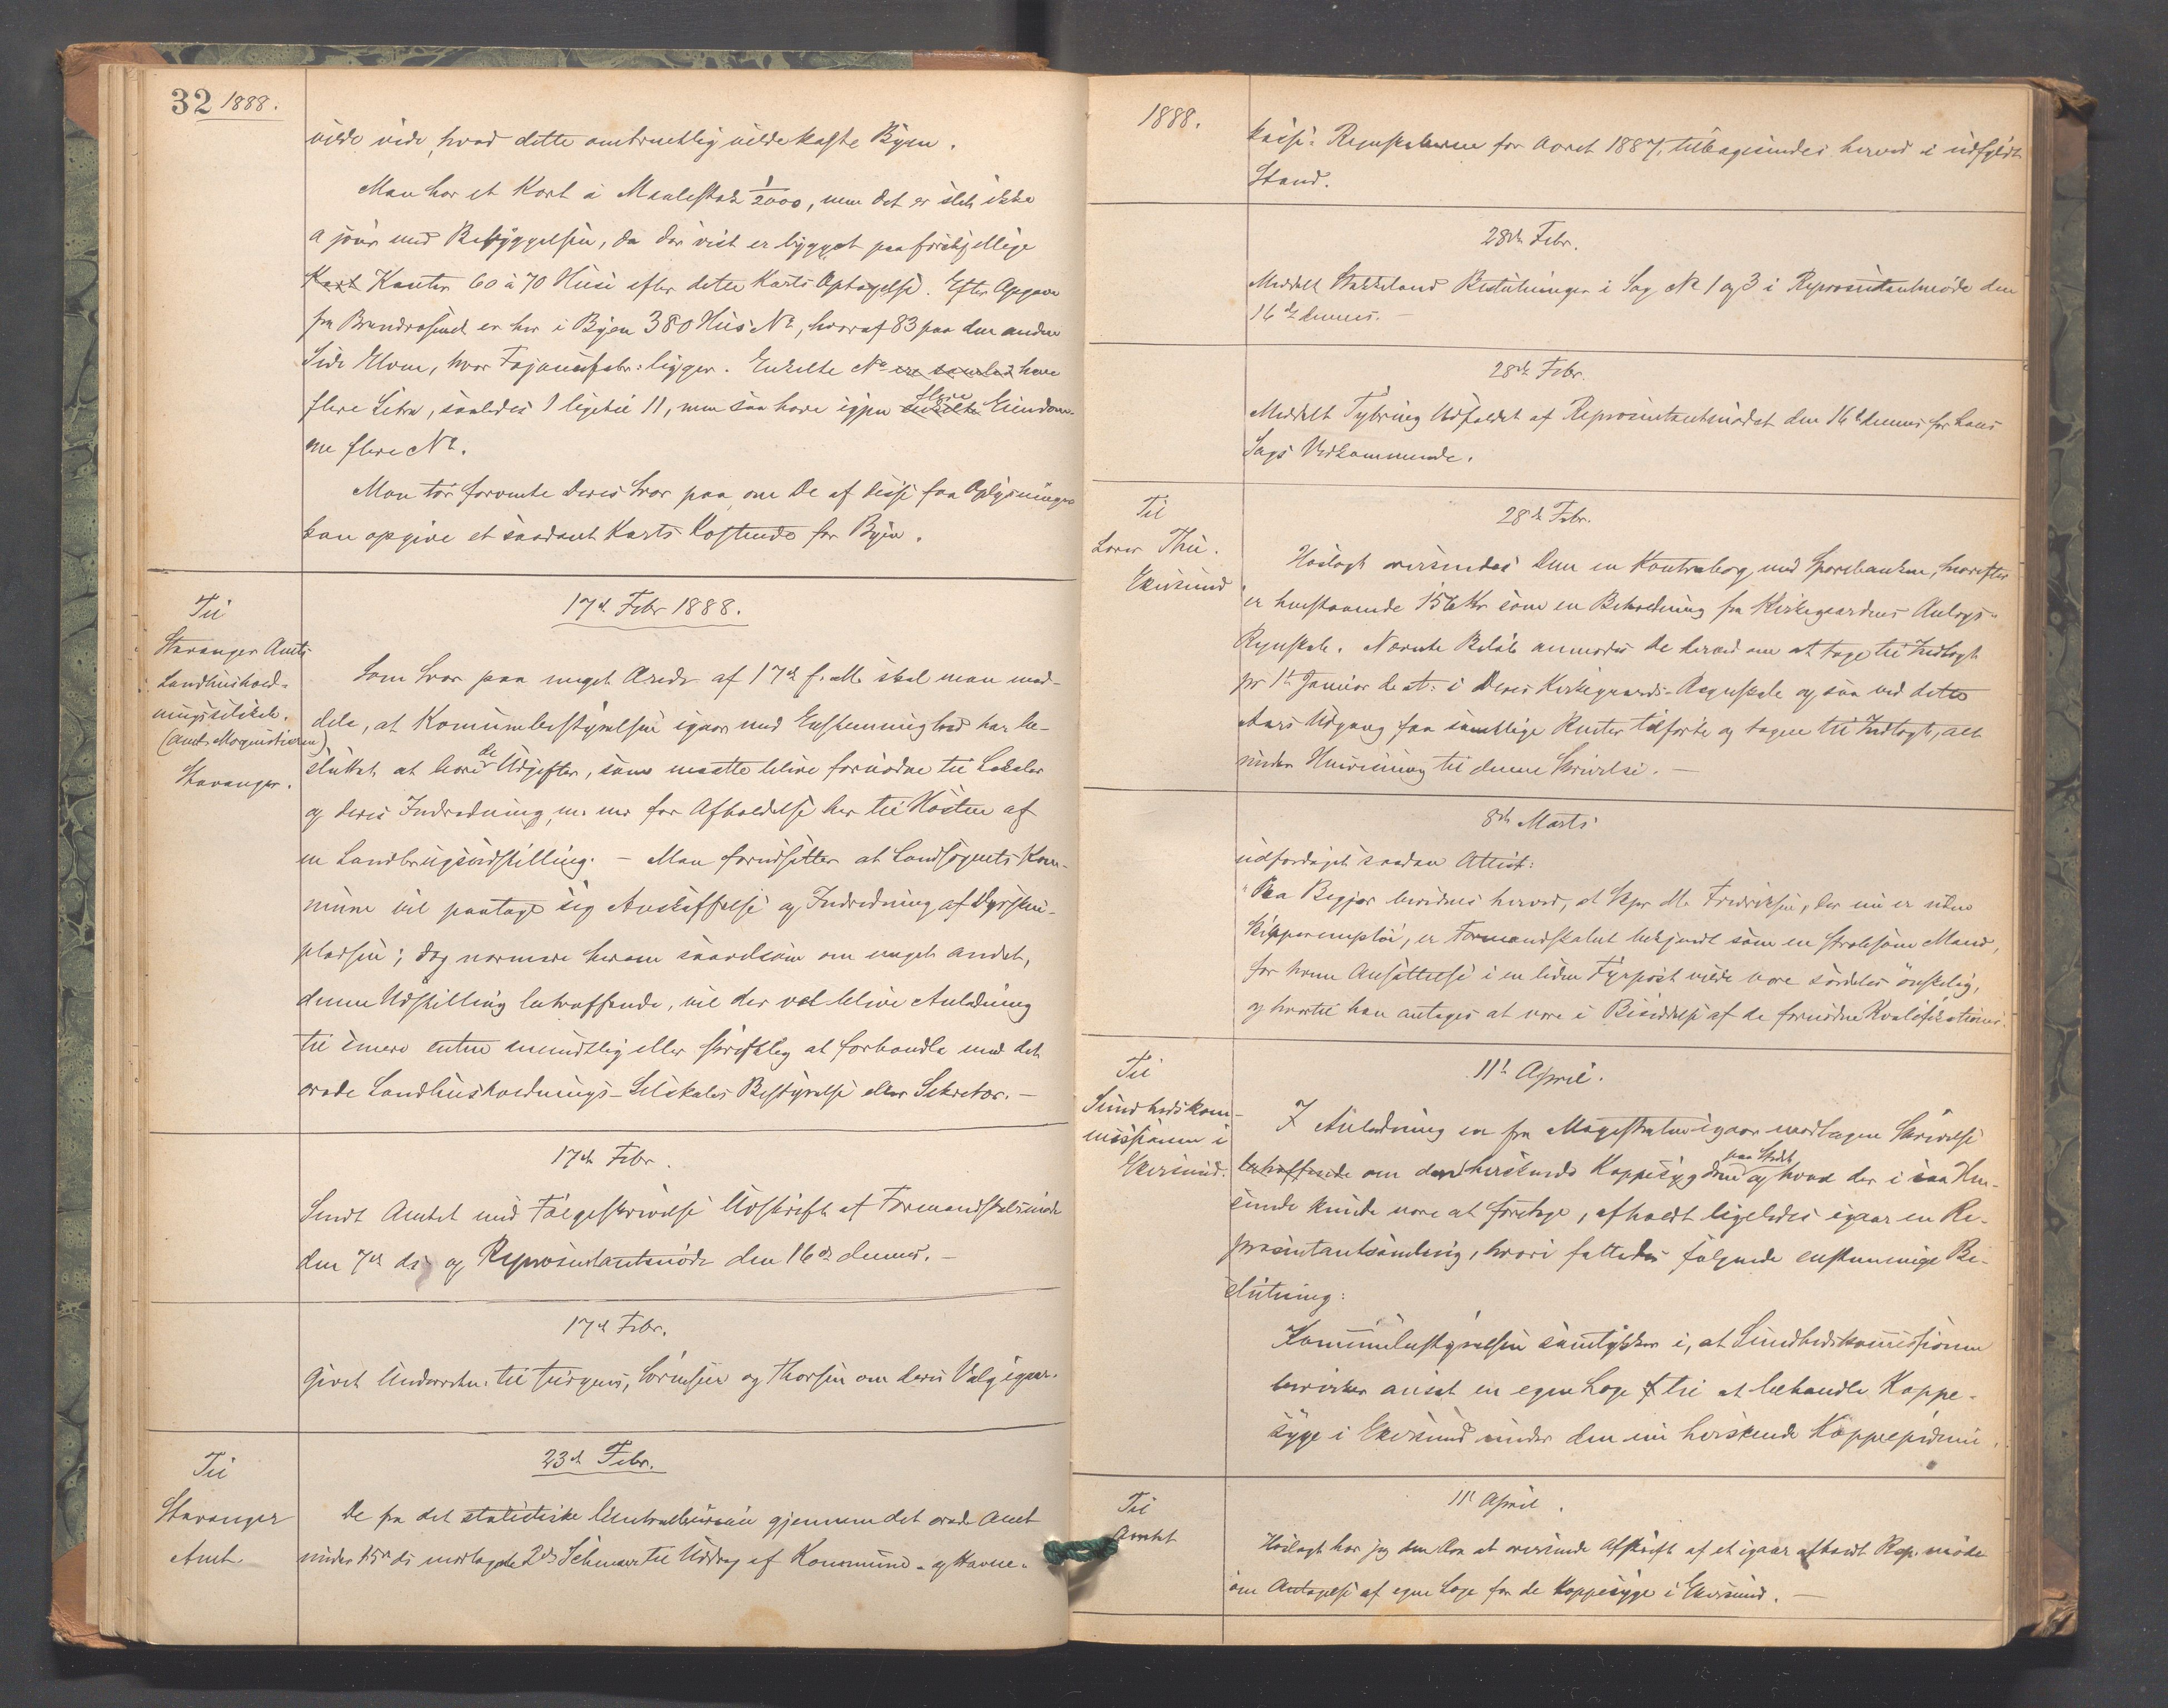 32 1888.
vilde vide, hvad dette omtrentlig vilde koste Byen.
Man har et Kart i Maalestok 1/2000, men det er slet ikke
a jour med Bebyggelsen, da der vist er bygget paa forskjellige
Kart Kanter 60 à 70 Huse efter dette Karts Optagelse. Efter Opgave
fra Brandvæsenet er her i Byen 380 Hus No, hvoraf 83 paa den anden
Side Elven, hvor Fajancefabr: ligger. Enkelte No ere samlet have
flere Litra, saaledes 1 ligetil 11, men saa have igjen enkelte flere Eiendom-
me flere No.
Man tør forvente Deres Svar paa, om De af disse faa Oplysninger
kan opgive et saadant Karts Kostende for Byen.
Til
Stavanger Amts
Landhushold-
ningsselskab.
(Amts Magnistionen)
Stavanger.
17de Febr 1888.
Som Svar paa meget Ærede af 17de f. M. skal man med-
dele, at Kommunebestyrelsen igaar med Enstemmighed har be-
sluttet at bære de Udgifter, som maatte blive fornødne til Lokaler
og deres Indredning m. m. for Afholdelse her til Høsten af
en Landbrugsudstilling. – Man forudsætter at Landsognets Kom-
mune vil paatage sig Anskaffelse og Indredning af Dyrskue-
pladsen; dog nærmere herom saavelsom om meget andet,
denne Udstilling betræffende, vil der vel blive Anledning
til senere enten mundtlig eller skriftlig at forhandle med det
ærede Landhusholdnings-Selskabs Bestyrelse eller Sekretær. –
17de Febr.
Sendt Amtet med Følgeskrivelse Udskrift af Formandskabsmøde
den 7de ds og Repræsentantmøde den 16de dennes. –
17de Febr.
Givet Underretn. til Jürgens, Sørensen og Thorsen om deres Valg igaar.
Til
Stavanger
Amt
23de Febr.
De fra det statistiske Centralbureau gjennem det ærede Amt
under 15de ds modtagne 2de Schemaer til Uddrag af Kommune- og Havne-
1888.
kasse: Regnskaberne for Aaret 1887, tilbagesendes herved i udfyldt
Stand.
28de Febr.
Meddelt Stakkeland Beslutninger i Sag No 1 og 3 i Repræsentantmøde den
16de dennes. –
28de Febr.
Meddelt Tybring Udfaldet af Repræsentantmødet den 16de dennes for hans
Sags Vedkommende.
Til
Lærer Thu.
Ekersund
28de Febr.
Hoslagt oversendes Dem en Kontrabog med Sparebanken, hvorefter
er henstaaende 156 Kr som en Beholdning fra Kirkegaardens Anlægs-
Regnskab. Nævnte Beløb anmodes De herved om at tage til Indtægt
pr 1ste Januar d. A. i Deres Kirkegaards-Regnskab og saa ved dette
Aars Udgang faa samtlige Renter tilførte og tagne til Indtægt, alt
under Henvisning til denne Skrivelse. –
8de Marts
udfærdiget saadan Attest:
"Paa Begjær bevidnes herved, at Skpr M. Fredriksen, der nu er uden
Skipperemploi, er Formandskabet bekjendt som en stræbsom Mand,
for hvem Ansættelse i en liden Fyrpost vilde være særdeles ønskelig,
og hvortil han antages at være i Besiddelse af de fornødne Kvalifikationer.
Til
Sundhedskom-
missionen i
Ekersund.
11te April.
I Anledning en fra Magistraten igaar modtagen Skrivelse
betræffende om den herskende Koppesygdom paa Stedet og hvad der i saa Hen-
seende kunde være at foretage, afholdt ligeledes igaar en Re-
præsentantsamling, hvori fattedes følgende enstemmige Be-
slutning:
Kommunebestyrelsen samtykker i, at Sundhedskommissionen
bevirker ansat en egen Læge til at behandle Koppe-
syge i Ekersund under den nu herskende Koppeepidemi.
Til
Amtet
11te April.
Hoslagt har jeg den Ære at oversende Afskrift af et igaar afholdt Rep. møde
om Antagelse af egen Læge for de Koppesyge i Ekersund. –